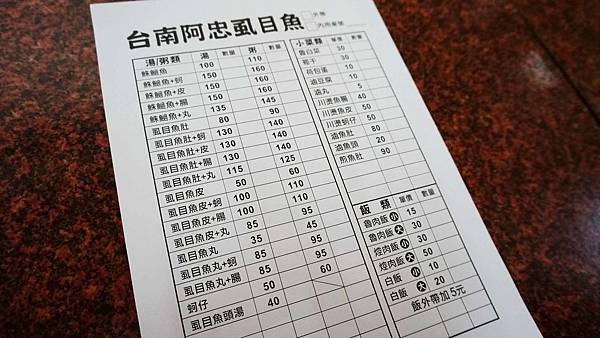 台南阿忠虱目魚
外帶
內用桌號
湯/粥類 湯 數量 粥 數量
魚 100 110
魚+蚵 150 160
魚+皮 150 160
魚+腸 150 160
魚+丸 135 145
虱目魚肚 80 90
虱目魚肚+蚵 130 140
虱目魚肚+皮 130 140
虱目魚肚+腸 130 140
虱目魚肚+丸 115 125
虱目魚皮 50 60
虱目魚皮+蚵 100 110
虱目魚皮+腸 100 110
虱目魚皮+丸 85 95
虱目魚丸 35 45
虱目魚丸+蚵 85 95
虱目魚丸+腸 85 95
蚵仔 50 60
虱目魚頭湯 40
小菜類 單價 數量
魯白菜 30
筍干 30
荷包蛋 10
滷豆腐 10
滷丸 5
川燙魚腸 40
川燙魚皮 50
川燙蚵仔 50
滷魚肚 80
滷魚頭 20
煎魚肚 90
飯類 單價 數量
魯肉飯 小 15
魯肉飯 大 30
焢肉飯 小 30
焢肉飯 大 50
白飯 小 10
白飯 大 20
飯外帶加5元